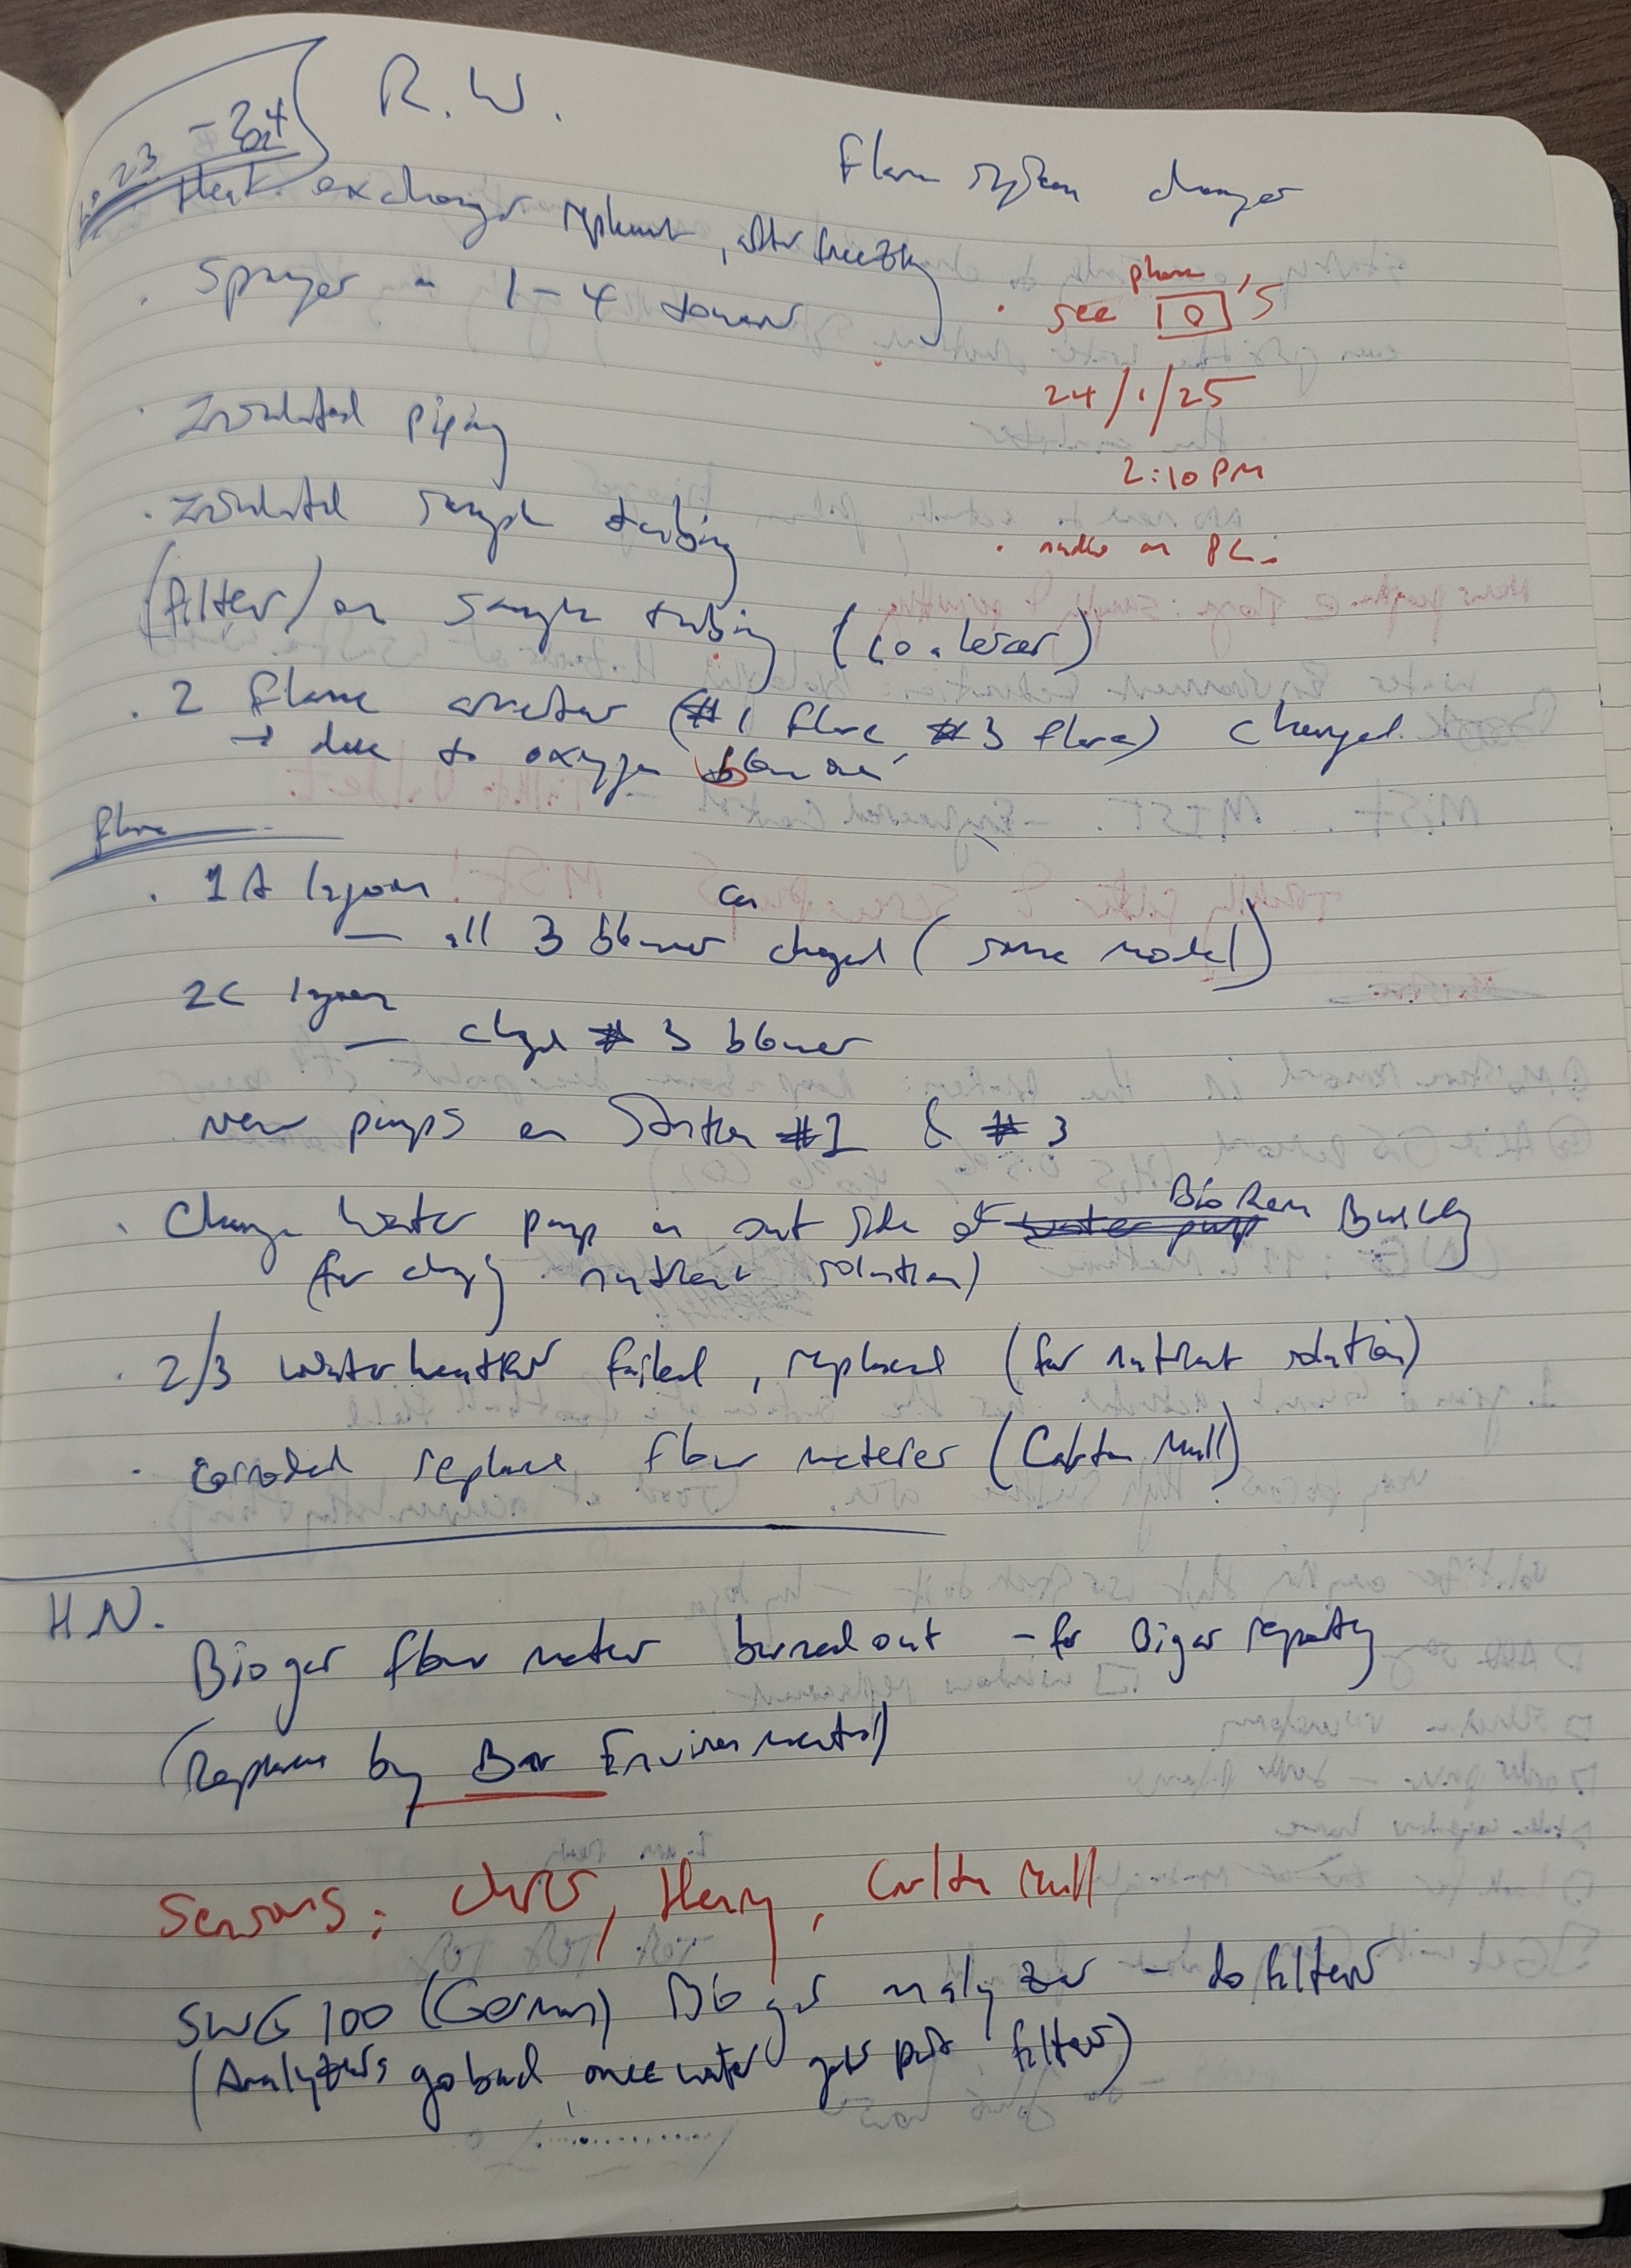 2023 - 2024
R.W.
Flare system changes
Heat exchanger replacement, after freezing
· Sprayer - 1-4 towers
phone
· see 's
24/1/25
2:10 PM
· on PC.
· Insulated piping
· Insulated sample tubing
(filter) on sample tubing (coalescer)
· 2 flame arrestor (#1 flare, #3 flare) changed
→ due to oxygen blower
flare
· 1A lagoon
— all 3 blower changed (same model)
2C lagoon
— changed #3 blower
new pumps on Station #1 & #3
· Change water pump on out side of Bio Rem Building
(for nutrient solution)
· 2/3 water heater failed, replaced (for nutrient solution)
· corroded replace flow meteres (Carlton Mull)
H.N.
Biogas flow meter burned out - for Biogas reporting
(Replace by Environmental)
Sensors: Chris, Henry, Carlton Mull
SWG 100 (German) Biogas analyzer - do filters
(Analyzers go bad once water gets past filter)